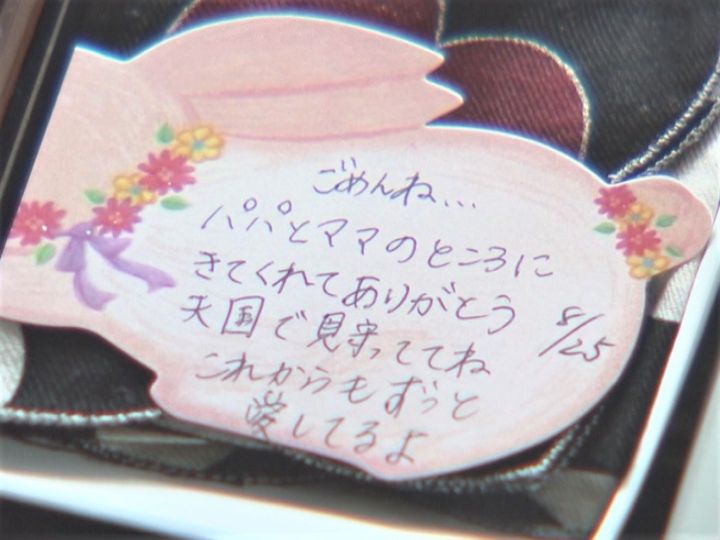 ごめんね...
パパとママのところに
きてくれてありがとう
天国で見守っててね
これからもずっと
愛してるよ
8/25